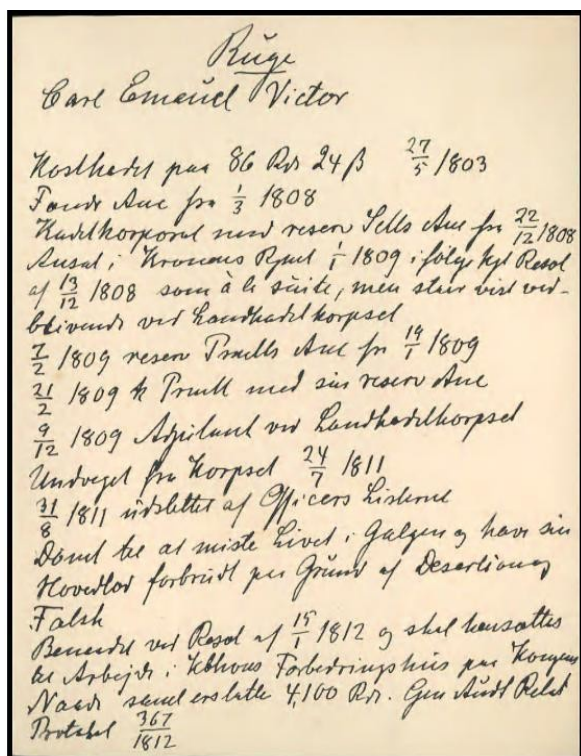 Ruge
Carl Emanuel Victor
Kostkadet paa 86 Rdr 24 β 27/5 1803
Fændr Anc fra 1/3 1808
Kadetkorporal med reserv Sells Anc fra 22/12 1808
Ansat i Kronens Rgmt 1/1 1809 i følge kgl Resol
af 13/12 1808 som à la suite, men staar vist ved-
blivende ved Landkadetkorpset
7/2 1809 reserv Prmlts Anc fra 19/1 1809
21/2 1809 k Prmlt med sin reserv Anc
9/12 1809 Adjutant ved Landkadetkorpset
Undveget fra Korpset 24/7 1811
31/8 1811 udslettet af Officers Listerne
Dømt til at miste Livet i Galgen og have sin
Hovedlod forbrudt paa Grund af Desertion og
Falsk
Benaadet ved Resol af 15/1 1812 og skal hensættes
til Arbejde i Kbhvns Forbedringshus paa Kongens
Naade samt erstatte 4,100 Rdr. Gen Audt Relat
Protokol 367/1812